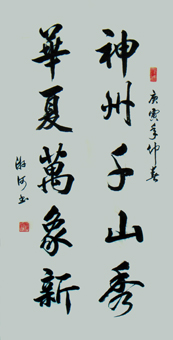 庚寅年仲春
神州千山秀
華夏萬象新